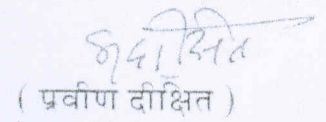 ( प्रवीण दीक्षित )